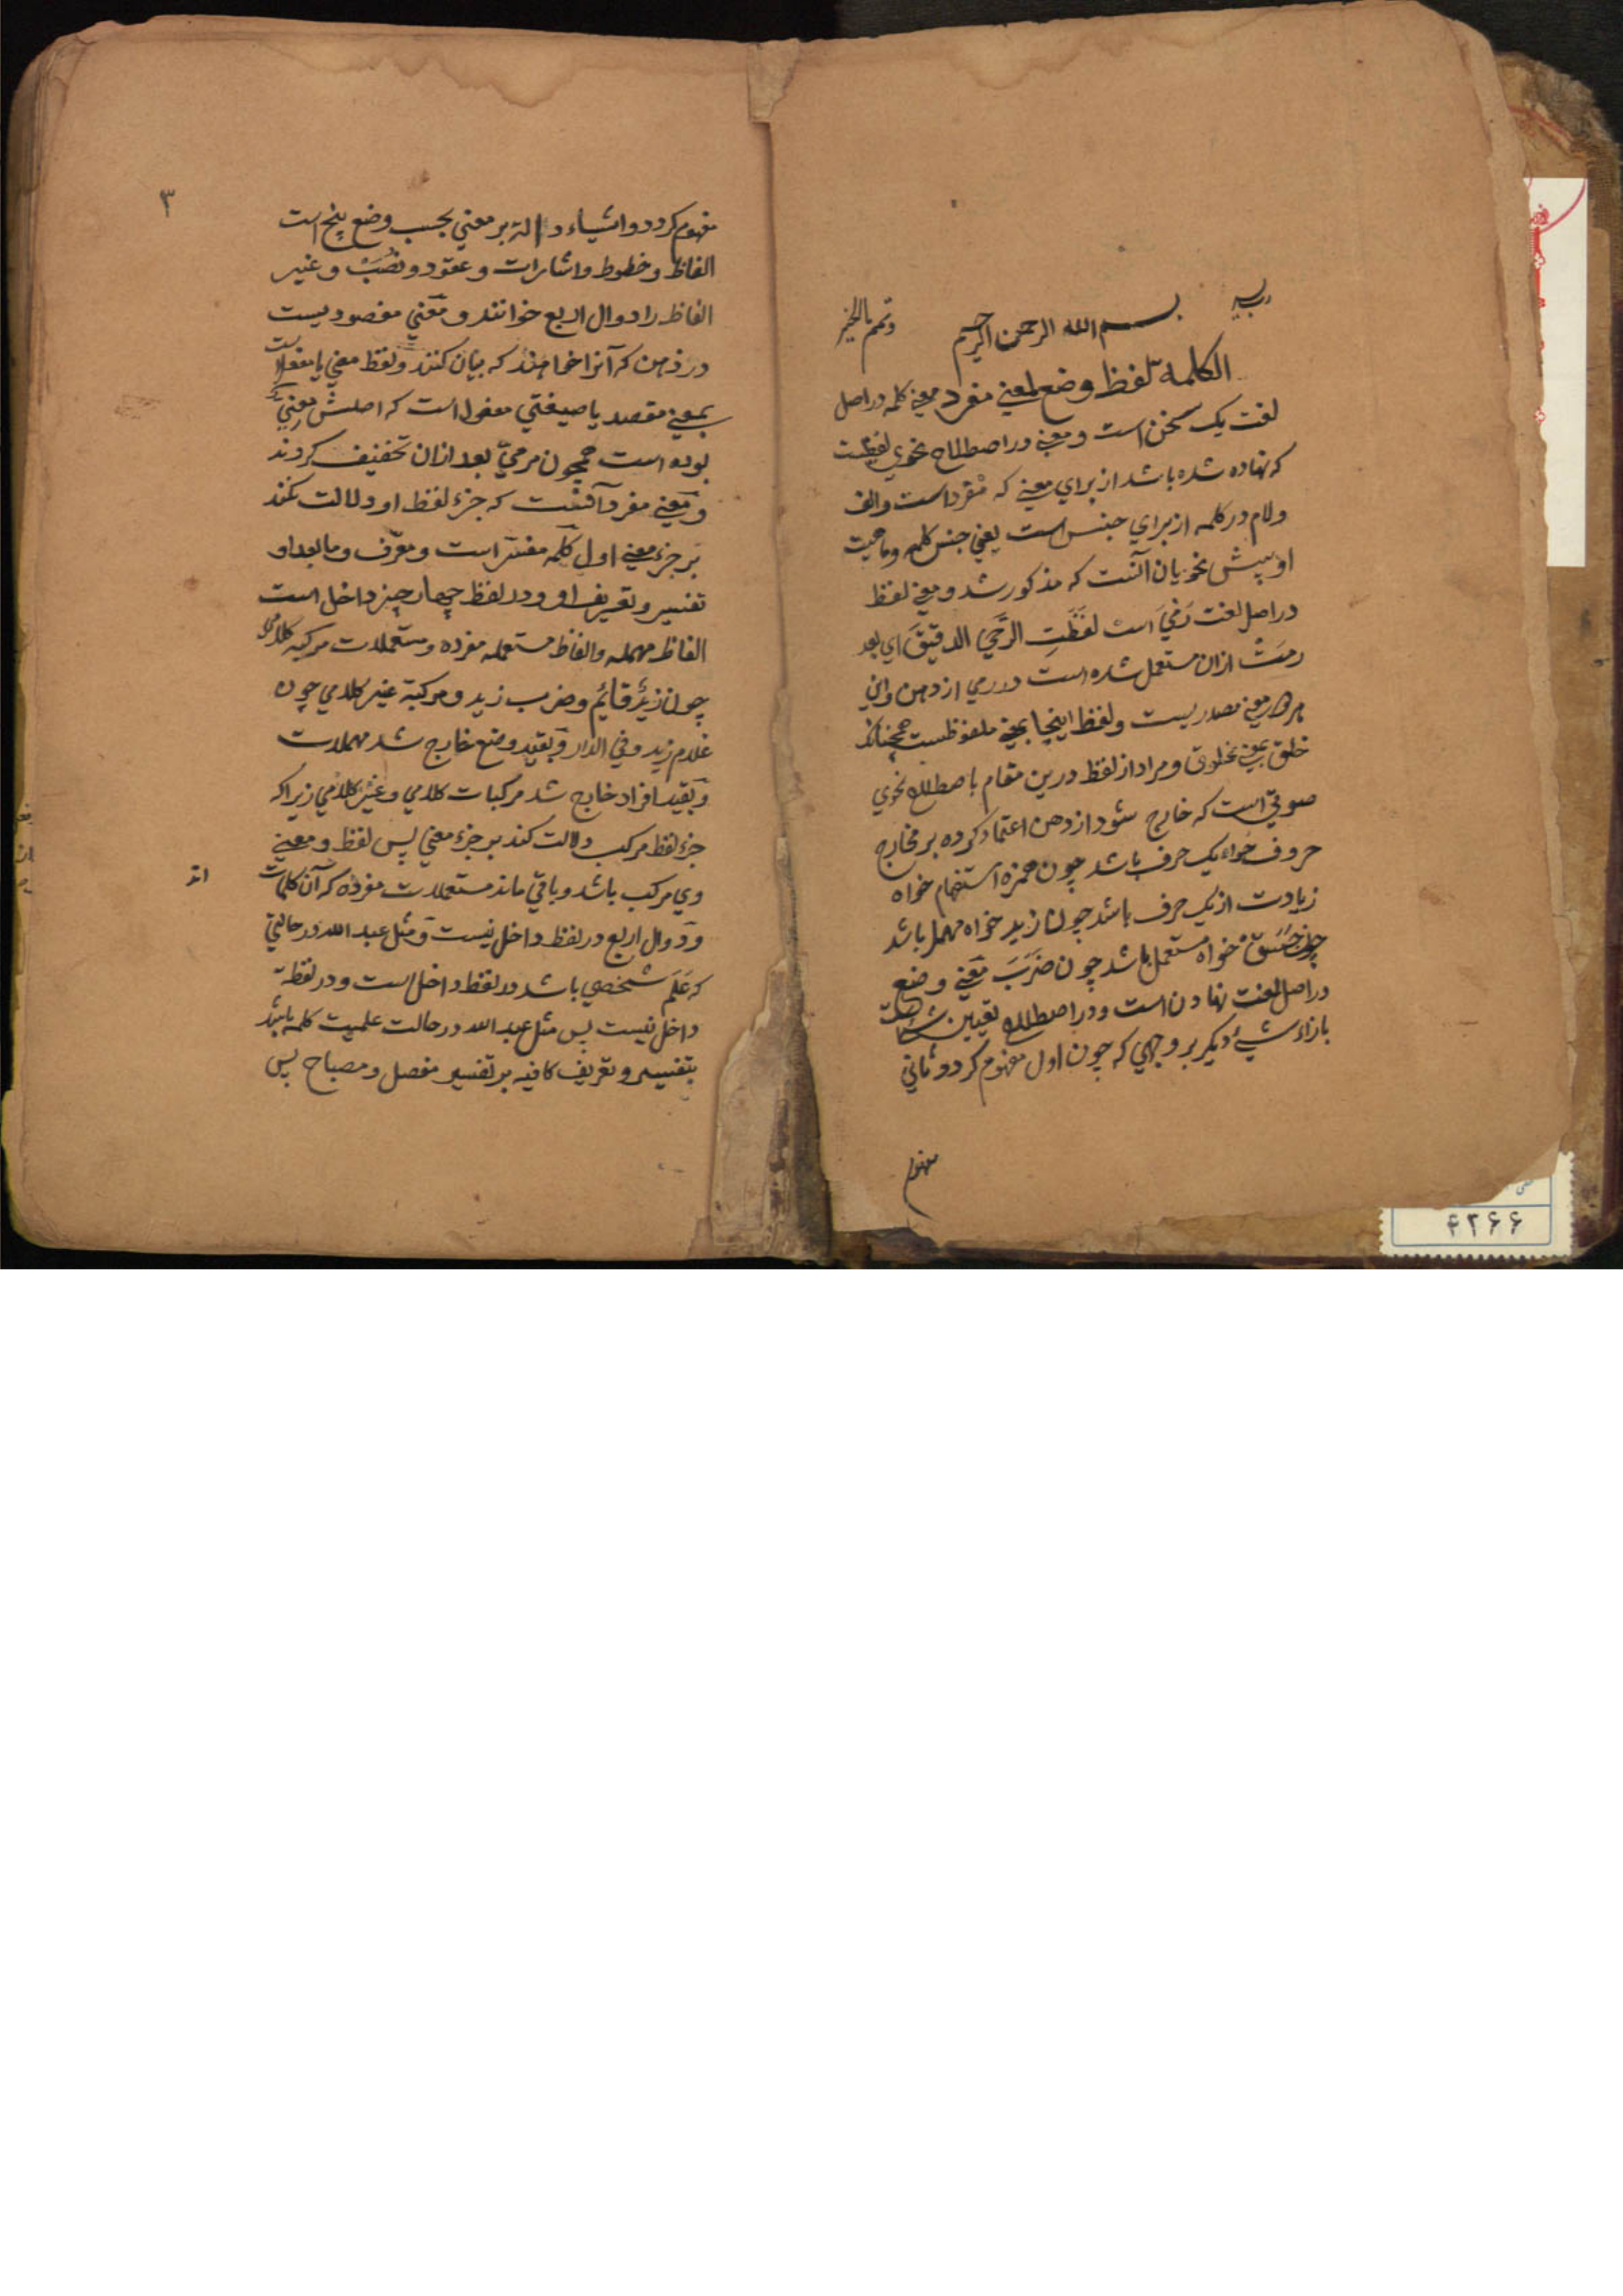 رب یسر بسم الله الرحمن الرحیم وتمم بالخیر
الکلمة لفظ وضع لمعنی مفرد معنی کلمه در اصل
لغت یک سخن است و معنی در اصطلاح نحوی لفظیست
که نهاده شده باشد از برای معنی که مفرد است والف
ولام در کلمه از برای جنس است یعنی جنس کلمه وماهیت
او پیش نحویان آنست که مذکور شد و معنی لفظ
در اصل لغت رَمیَ است لَفَظَتِ الرَّحَیٰ الدقیقَ ای
رمَتْ از ان مستعمل شده است در رمی از دهن واین
هردو معنی مصدریست ولفظ اینجا بمعنی ملفوظست همچنانکه
خلق بمعنی مخلوق ومراد از لفظ درین مقام باصطلاح نحوی
صوتی است که خارج شود از دهن اعتماد کرده بر مخارج
حروف خواه یک حرف باشد چون همزه استفهام خواه
زیادت از یک حرف باشد چون زید خواه مهمل باشد
چون جَسَق خواه مستعمل باشد چون ضَرَبَ معنی وضع
در اصل لغت نهادن است ودر اصطلاح تعیین
بازاء شیء دیگر بر وجهی که چون اول مفهوم کردد ثانی
مفهوم
۳
مفهوم کردد واشیاء دالة بر معنی بحسب وضع پنج است
الفاظ وخطوط واشارات وعقود ونُصَبْ وغیر
الفاظ را دوال اربع خوانند ومعنی مقصودیست
در ذهن که آنرا خواهند که بیان کنند ولفظ معنی یا مفعلست
بمعنی مقصد یا صیغتی مفعول است که اصلش معنِیٌّ
بوده است همچون مرمیّ بعد ازان تخفیف کردند
ومعنی مفرد آنست که جزء لفظ او دلالت نکند
بر جزء معنی اول کلمه مفسّر است ومعرّف وما بعد او
تفسیر وتعریف او ودر لفظ چهار چیز داخل است
الفاظ مهمله والفاظ مستعمله مفرده ومستعملات مرکبه کلامی
چون زیدٌ قائیم وضرب زید ومرکبة غیر کلامی چون
غلام زید وفی الدار وبقید وضع خارج شد مهملات
وبقید افراد خارج شد مرکبات کلامی وغیر کلامی زیراکه
جزء لفظ مرکب دلالت کند بر جزء معنی پس لفظ ومعنی
وی مرکب باشد وباقی ماند مستعملات مفرده که آن کلمات
اند
ودوال اربع در لفظ داخل نیست ومثل عبد الله در حالتی
که عَلَم شخصی باشد در لفظ داخل است ودر لفظة
داخل نیست پس مثل عبد الله در حالت علمیت کلمه باشد
بتفسیر وتعریف کافیه بر تفسیر مفصل ومصباح پس
۴۲۶۶